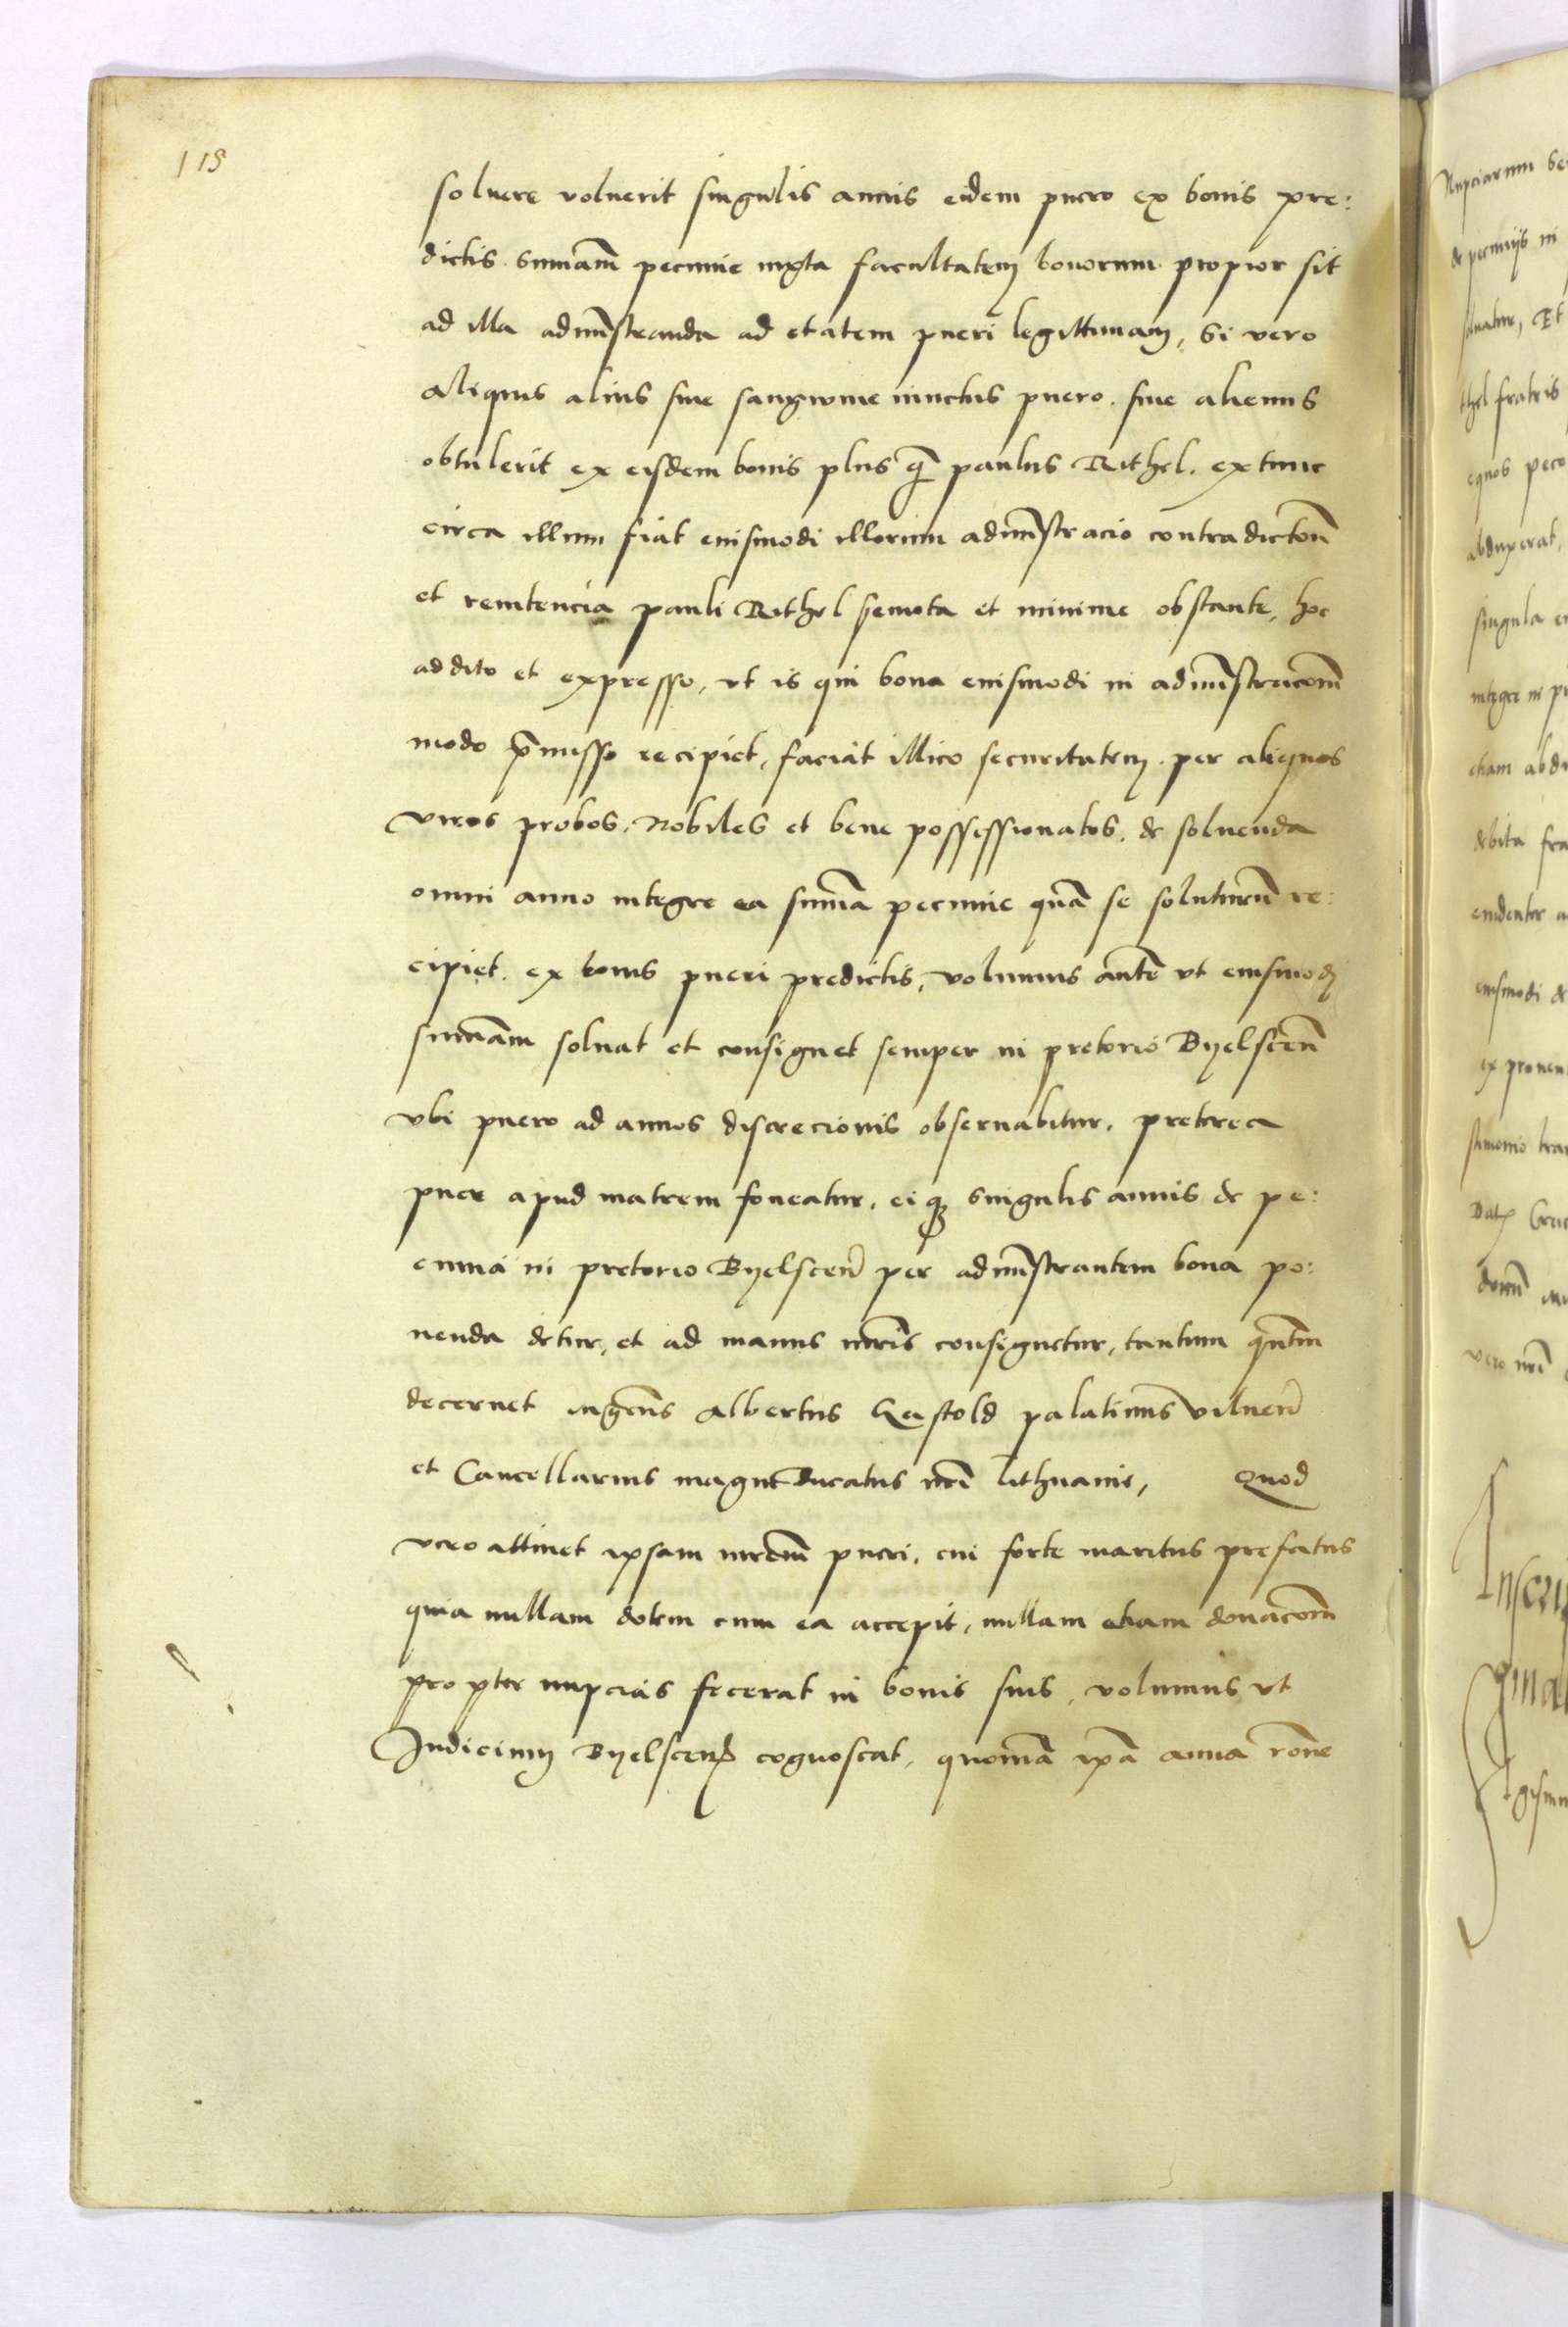 118
soluere voluerit singulis annis eidem puero ex bonis pre:
dictis summam̄ pecunie iuxta facultatem bonorum propior sit
ad illa admīstranda ad etatem pueri legittimam, Si vero
aliquis alius siue sanguine iunctus puero siue alienus
obtulerit ex eisdem bonis plus q̄ paulus Rithel. extunc
circa illum fiat eiusmodi illorum admīstracio contradictōn̄
et renitencia pauli Rithel semota et minime obstante, hoc
addito et expresso, vt is qui bona eiusmodi in admīstracōm̄
modo p̄misso recipiet, faciat illico securitatem per aliquos
viros probos, Nobiles et bene possessionatos, de soluenda
omni anno integre ea summā pecunie quā se soluturū re:
cipiet. ex bonis pueri predictis, volumus autē vt eiusmodi
summām soluat et consignet semper in pretorio Byelscen̄
vbi puero ad annos discrecionis obseruabitur, preterea
puer apud matrem foueatur, eiq3 singulis annis de pe:
cunia in pretorio Byelscen̄ per admīstrantem bona po:
nenda detur, et ad manus mr̄is consignetur, tantum qn̄tm̄
decernet mgc̄us Albertus Gastold palatinus vilnen̄
et Cancellarius magni Ducatus nr̄i Lithuanie, Quod
vero attinet ipsam mrem̄ pueri, cui forte maritus prefatus
quia nullam dotem cum ea accepit, nullam etiam donacōm̄
propter nupcias fecerat in bonis suis, volumus vt
Iudicium Byelscen̄ cognoscat, quoniā ip̄a anna rōne